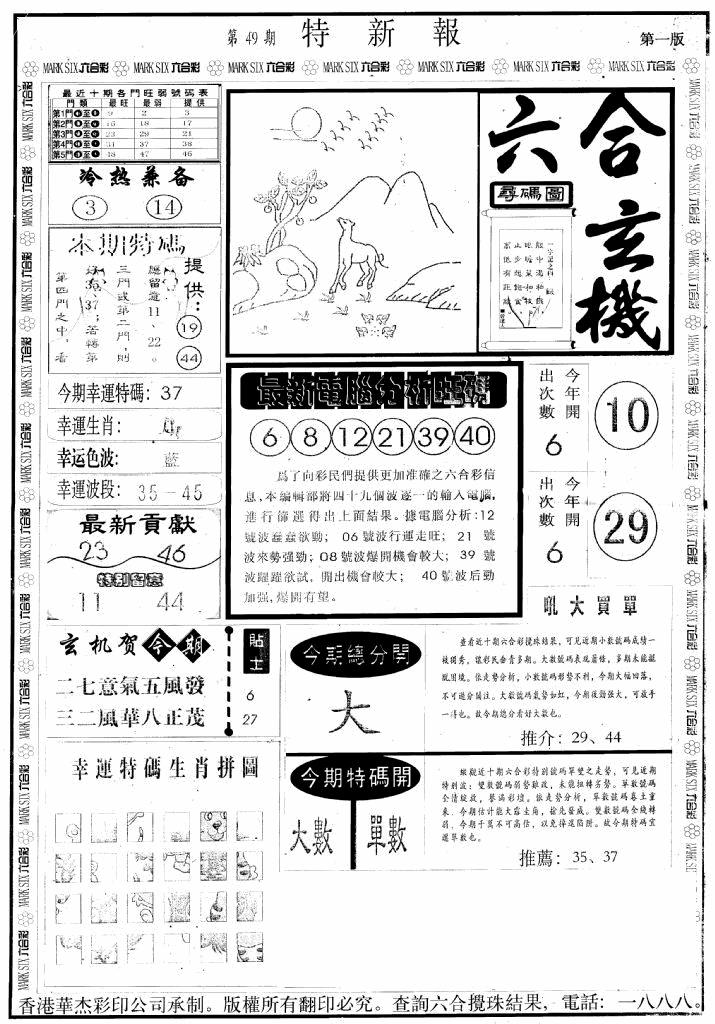 第49期 特新報 第一版
MARK SIX 六合彩 MARK SIX 六合彩 MARK SIX 六合彩 MARK SIX 六合彩 MARK SIX 六合彩 MARK SIX 六合彩 MARK SIX 六合彩
最近十期各門旺弱號碼表
門類 最旺 最弱 提供
第1門 9 2 3
第2門 16 18 17
第3門 23 29 21
第4門 31 37 38
第5門 48 47 46
冷热兼备
3 14
本期特碼
提供:
19
44
應留意11、22。
三門或第二門,則
37;若轉第
第四門之中,看
今期幸運特碼: 37
幸運生肖:
幸运色波: 藍
幸運波段: 35-45
最新貢獻
23 46
特别留意
11 44
六合玄機
尋碼圖
最新電腦分析旺號
6 8 12 21 39 40
爲了向彩民們提供更加准確之六合彩信
息,本編輯部將四十九個波逐一的輸入電腦,
進行篩選得出上面結果。據電腦分析:12
號波蠢蠢欲動; 06號波行運走旺; 21 號
波來勢强勁; 08號波爆開機會較大; 39 號
波躍躍欲試, 開出機會較大; 40號波后勁
加强,爆開有望。
今年開出次數 6 10
今年開出次數 6 29
玄机贺今期
二七意氣五風發
三二風華八正茂
貼士
6
27
幸運特碼生肖拼圖
今期總分開
大
吼大買單
查看近十期六合彩攪珠結果,可見近期小數號碼成績一
枝獨秀,讓彩民齒青多期。大數號碼表現蕭條,多期未能擺
脱困境。依走勢分析,小數號碼形勢不利,今期大幅回落,
不可過分關注。大數號碼氣勢如虹,今期後勁强大,可放手
一得也。故今期總分看好大數也。
推介: 29、44
今期特碼開
大數 單數
縱觀近十期六合彩特别號碼單雙之走勢,可見近期
特别波:雙數號碼弱勢難改,未能扭轉劣勢。單數號碼
全情綻放,譽滿彩壇。依走勢分析,單數號碼卷土重
來,今期估計能大露主角,搶先發威。雙數號碼全綫轉
弱,今期千萬不可高估,以免掉進陷阱。故今期特碼宜
選單數也。
推薦: 35、37
香港華杰彩印公司承制。版權所有翻印必究。查詢六合攪珠結果,電話: 一八八八。